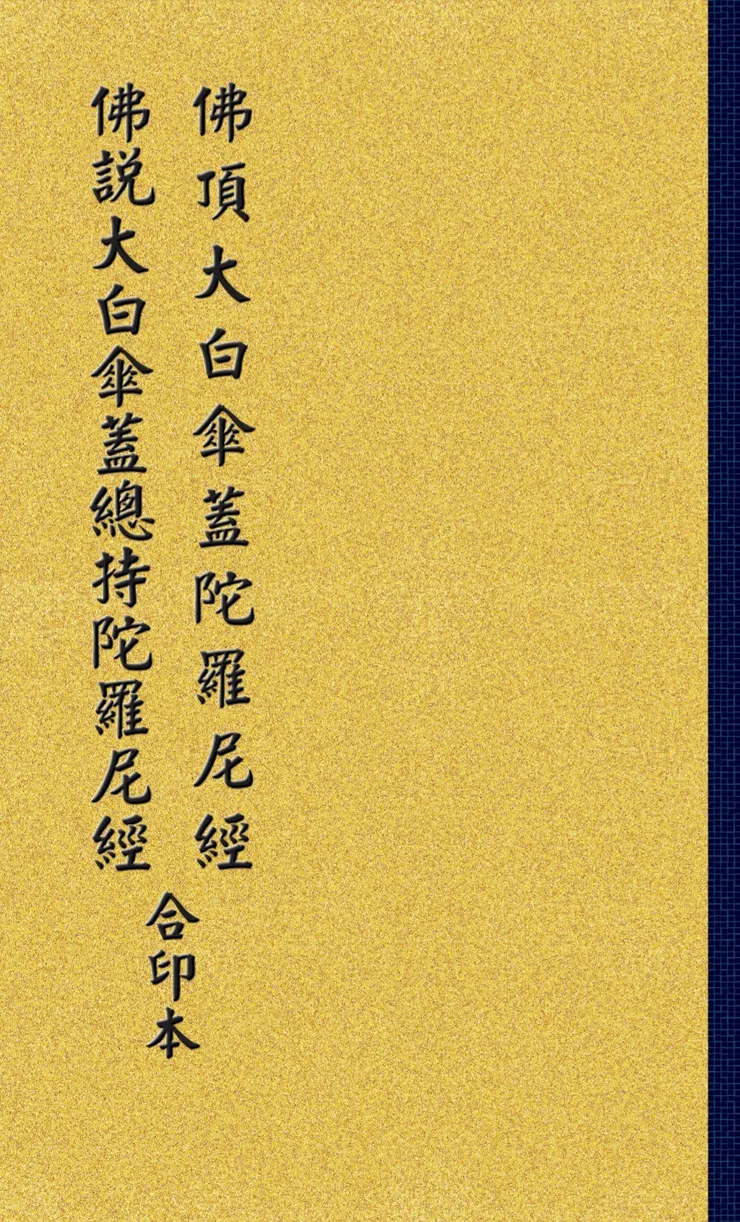 佛頂大白傘蓋陀羅尼經
佛説大白傘蓋總持陀羅尼經
合印本